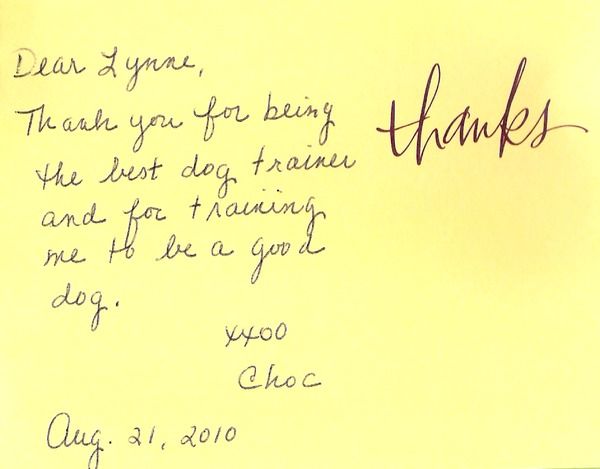 Dear Lynne,
thanks
Thank you for being
the best dog trainer
and for training
me to be a good
dog.
xxoo
Choc
Aug. 21, 2010